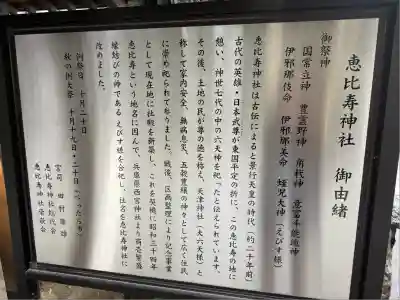 恵比寿神社 御由緒
御祭神
国常立神 豊雲野神 角杙神 意富斗能地神
伊邪那岐命 伊邪那美命 蛭児大神(えびす様)
恵比寿神社は古伝によると景行天皇の時代(約二千年前)
古代の英雄・日本武尊が東国平定の折に、この恵比寿の地に
憩い、神世七代の中の六天神を祀ったと伝えられています。
その後、土地の民が尊の徳を称え、天津神社(大六天様)と
称して家内安全、無病息災、五穀豊穣の神々として広く住民
に崇め祀られてまいりました。戦後、区画整理により記念事業
として現在地に社殿を新築し、これを契機に昭和三十四年
恵比寿という地名に因んで、兵庫県西宮神社より商売繁盛
縁結びの神であるえびす様を合祀し、社名を恵比寿神社に
改めました。
例祭日 十月二十日
秋の例大祭 十月十九日・二十日(べったら市)
宮司 田村
恵比寿神社総代会
恵比寿神社奉敬会